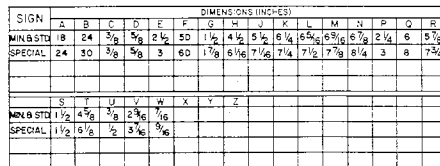 DIMENSIONS (INCHES)
SIGN A B C D E F G H J K L M N P Q R
MIN.& STD. 18 24 3/8 5/8 2 1/2 5D 1 1/2 4 1/2 5 1/2 6 1/4 6 5/16 6 9/16 6 7/8 2 1/4 6 5 7/8
SPECIAL 24 30 3/8 5/8 3 6D 1 7/8 6 1/16 7 1/16 7 1/4 7 1/2 7 7/8 8 1/4 3 8 7 3/4
S T U V W X Y Z
MIN.& STD. 1 1/2 4 5/8 3/8 2 9/16 7/16
SPECIAL 1 1/2 6 1/8 1/2 3 7/16 9/16